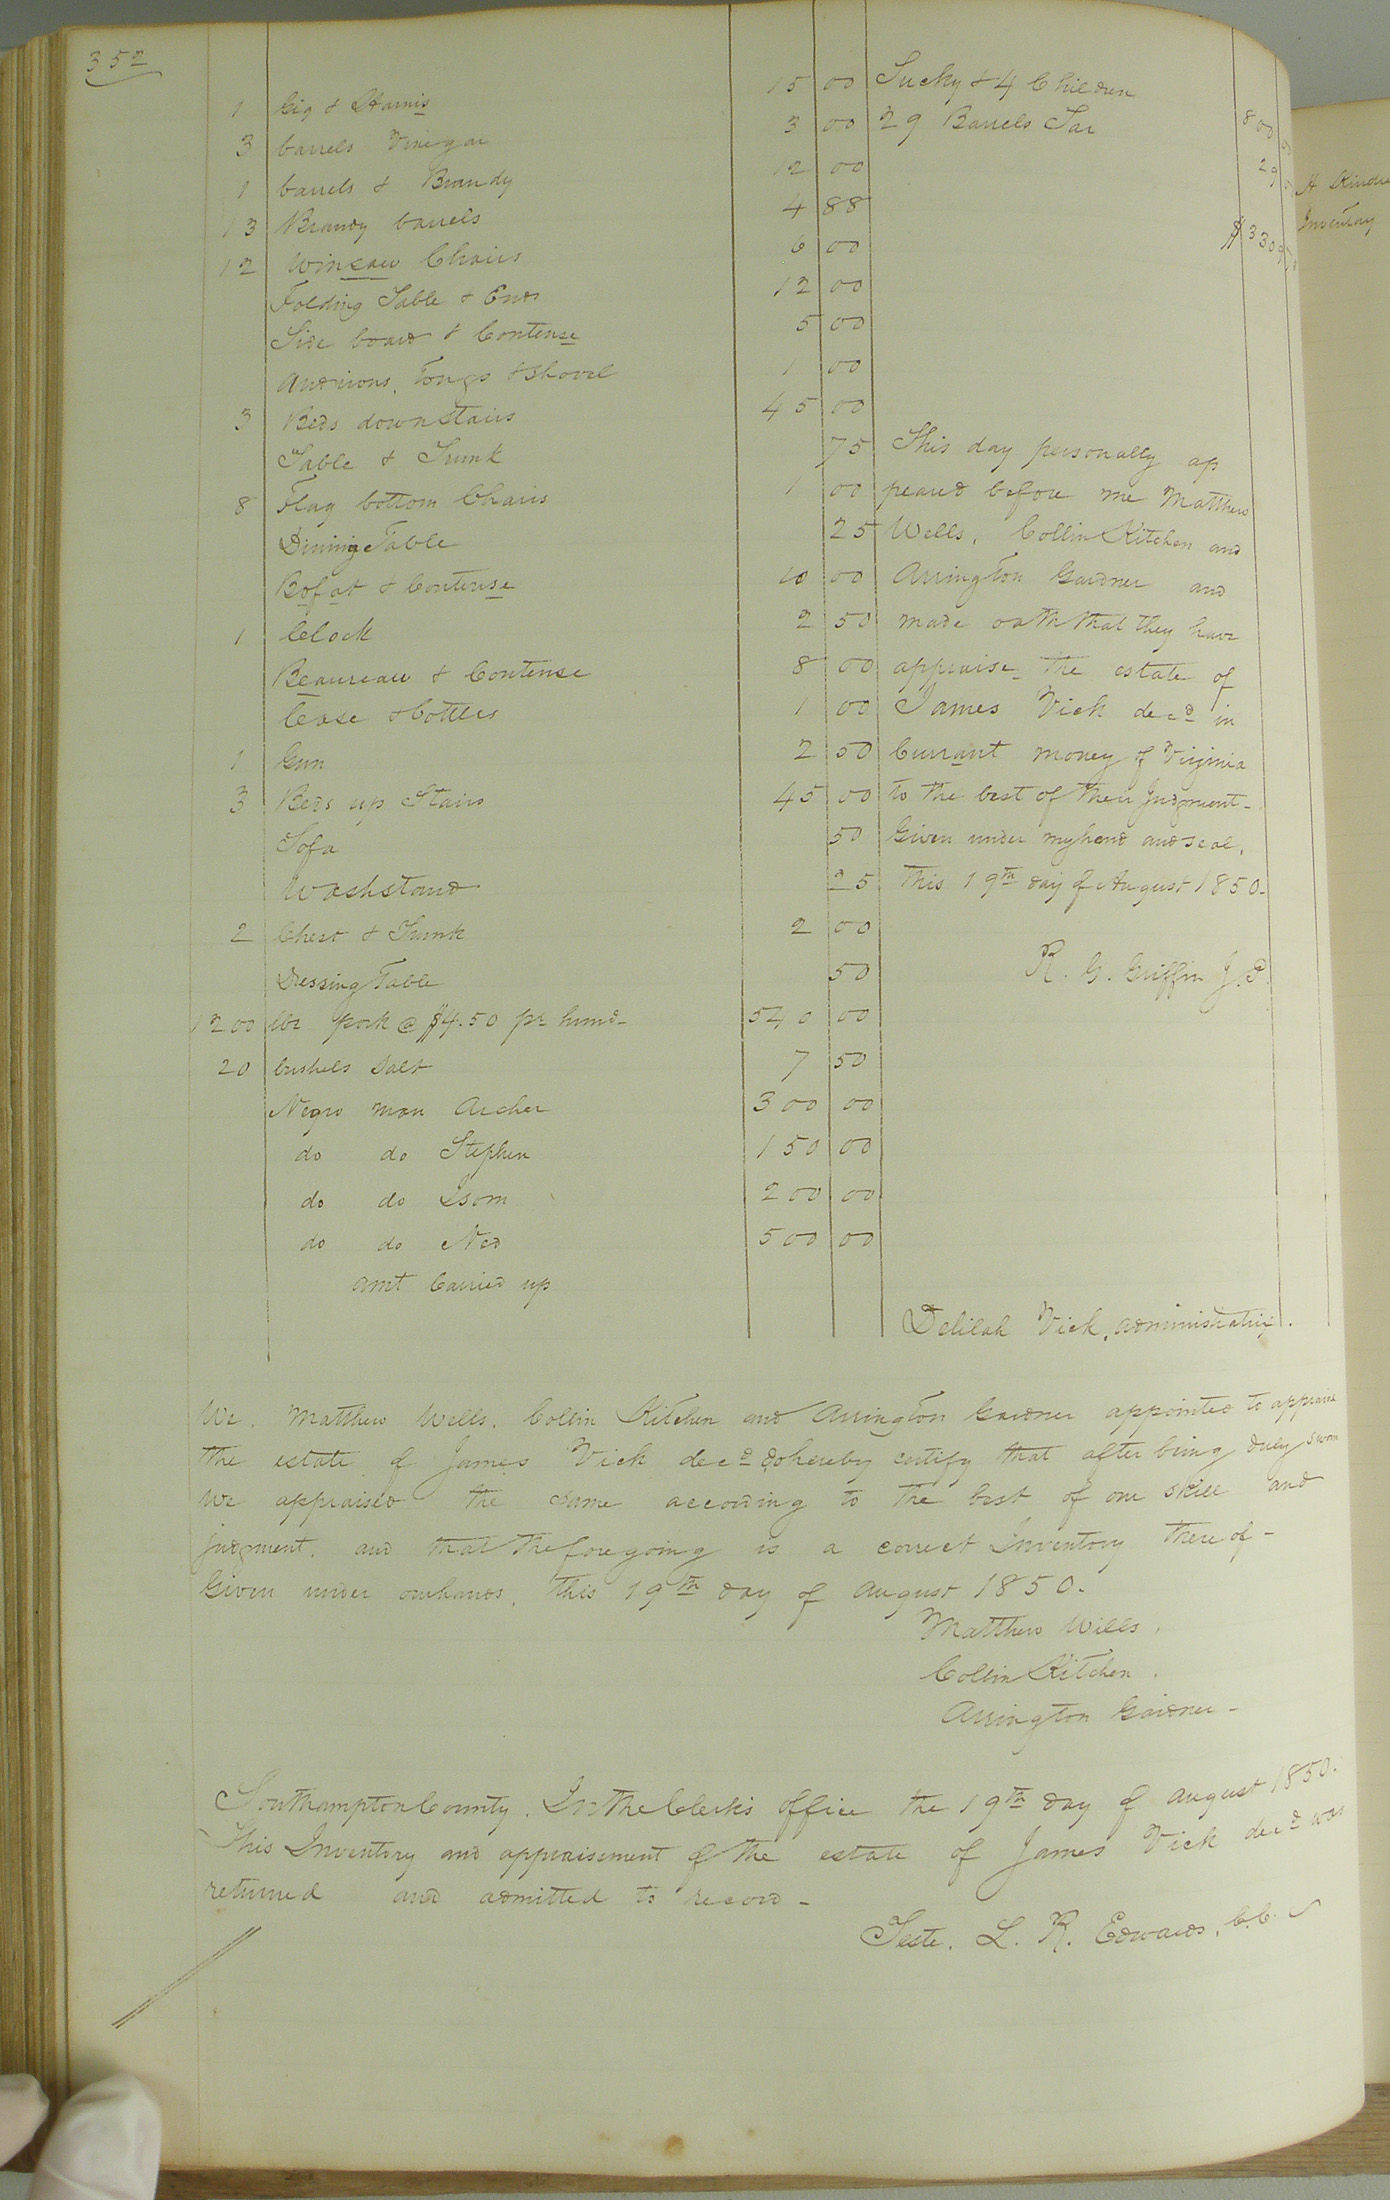 352
1 Gig & Harnis 15 00
3 barrels Vinegar 3 00
1 barrels & Brandy 12 00
13 Brandy barrels 4 88
12 Winsaw Chairs 6 00
Folding Table & Ends 12 00
Side board & Contense 5 00
Andirons, Tongs & Shovel 1 00
3 Beds down stairs 45 00
Table & Trunk 75
8 Flag bottom Chairs 1 00
Dining Table 25
Bofat & Contense 10 00
1 Clock 2 50
Beaureau & Contense 8 00
Case & bottles 1 00
1 Gun 2 50
3 Beds up Stairs 45 00
Sofa 50
Washstand 25
2 Chest & Trunk 2 00
Dressing Table 50
1200 lbs pork @ $4.50 pr hund- 540 00
20 bushels Salt 7 50
Negro man Archer 300 00
do do Stephen 150 00
do do Isom 200 00
do do Ned 500 00
amt Carried up
Sucky & 4 Children 800
29 Barrels Tar 29
This day personally ap
peared before me Matthew
Wells, Collin Kitchen and
Arrington Gardner and
made oath that they have
appraise the estate of
James Vick decd in
Currant money of Virginia
to the best of their Judgment-
Given under my hand and seal,
this 19th day of August 1850-
R. G. Griffin J.P.
Delilah Vick, administratrix.
We, Matthew Wells, Collin Kitchen and Arrington Gardner appointed to appraise
the estate of James Vick decd do hereby certify that after being duly sworn
We appraised the same according to the best of our skill and
judgment, and that the foregoing is a correct Inventory there of-
Given under our hands, this 19th day of August 1850-
Matthew Wills,
Collin Kitchen.
Arrington Gardner-
Southampton County, In the Clerk's office the 19th day of August 1850.
This Inventory and appraisement of the estate of James Vick decd was
returned and admitted to record-
Teste. L. R. Edwards, C.C.
Inventory